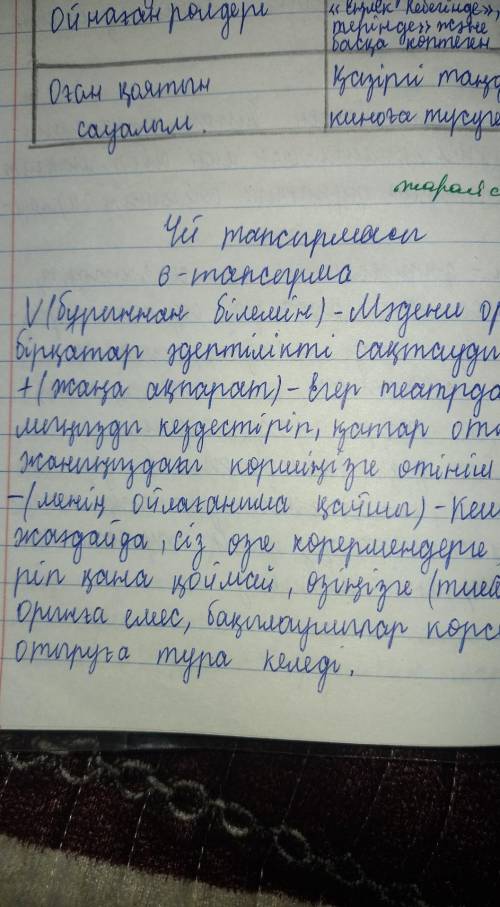 Ойнаған рөлдері
«Еңлік Кебегінде»,
терінде» және
басқа көптеген
Оған қоятын
сауалым.
Қазіргі таңд
киноға түсуге
жарайс
Үй тапсырмасы
6-тапсырма
V(бұрыннан білемін)-Мәдени ор
бірқатар әдептілікті сақтауды
+(жаңа ақпарат)-Егер театрда
мыңызды кездестіріп, қатар оты
жаныңыздағы көршіңізге өтініш
-(менің ойлағаныма қайшы)-Кеш
жағдайда, сіз өзге көрермендерге
ріп қана қоймай, өзіңізге (тиес
орынға емес, бақылаушылар көрсе
отыруға тура келеді.